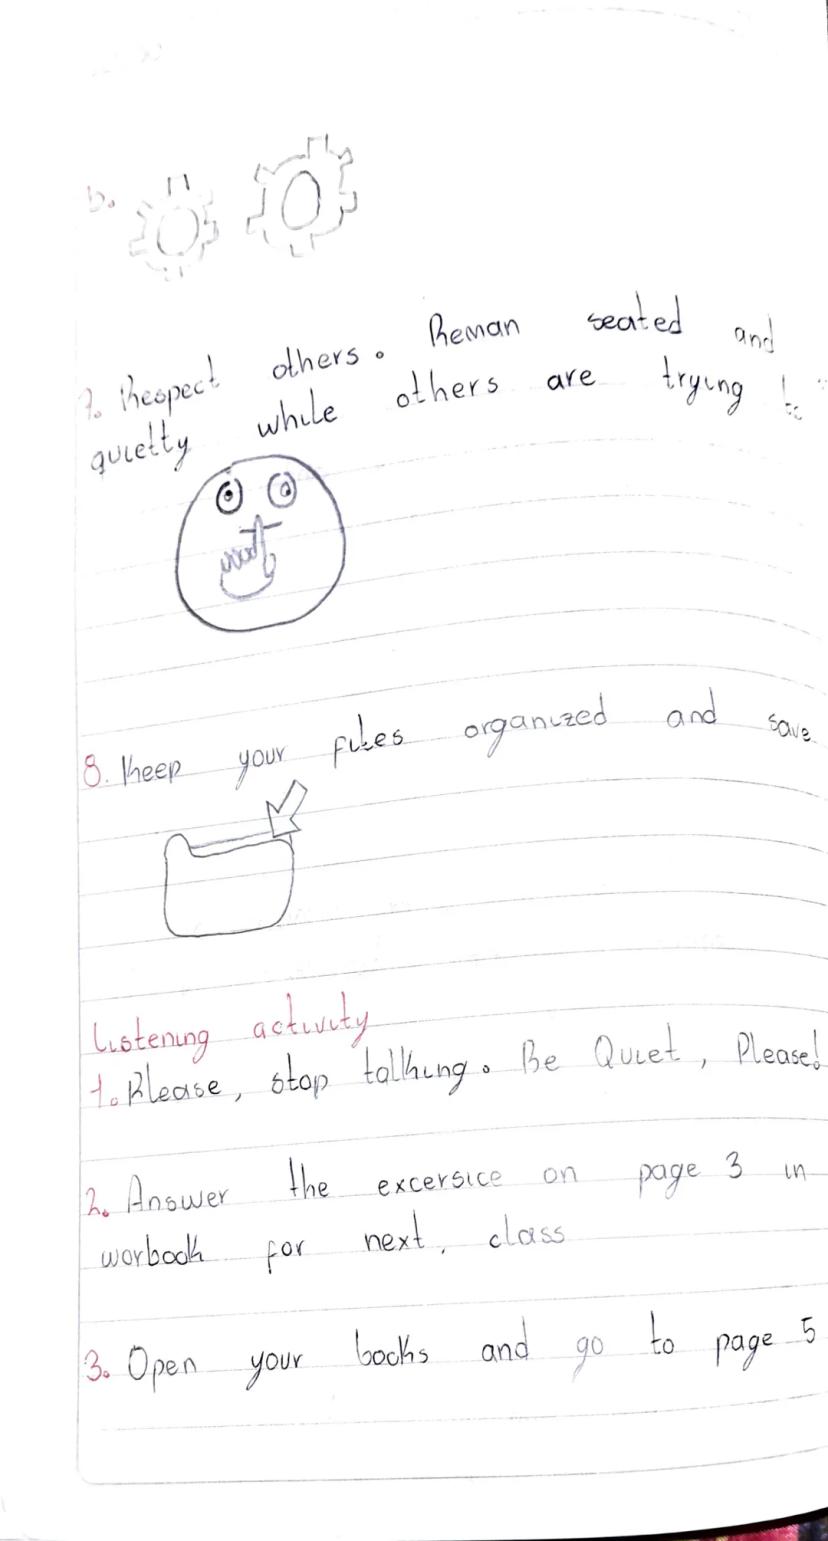 b.
7. Respect others. Reman seated and
quietty while others are trying to
8. Keep your files organized and save
Listening activity
1. Please, stop talking. Be Quiet, Please!
2. Answer the excersice on page 3 in
worbook for next, class
3. Open your books and go to page 5